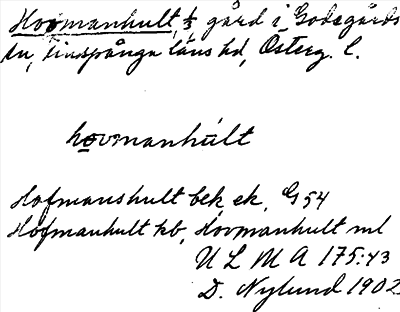 Hovmanhult, ½ gård i Godegårds
sn, Finspånga läns hd, Österg. l.
hovmanhúlt
Hofmanshult bek ek, G 54
Hofmanhult kb, Hovmanhult ml
U L M A 175:43
D. Nylund 1902